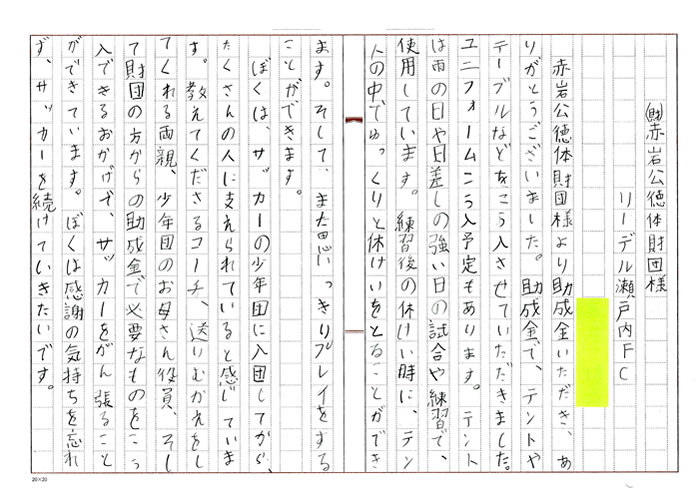 ㈶赤岩公徳体財団様
リーデル瀬戸内FC
赤岩公徳体財団様より助成金いただき、あ
りがとうございました。助成金で、テントや
テーブルなどをこう入させていただきました。
ユニフォームこう入予定もあります。テント
は雨の日や日差しの強い日の試合や練習で、
使用しています。練習後の休けい時に、テン
人の中でゆっくりと休けいをとることができ
ます。そして、また思いっきりプレイをする
ことができます。
ぼくは、サッカーの少年団に入団してから、
たくさんの人に支えられていると感じていま
す。教えてくださるコーチ、送りむかえをし
てくれる両親、少年団のお母さん役員、そし
て財団の方からの助成金で必要なものをこう
入できるおかげで、サッカーをがん張ること
ができています。ぼくは感謝の気持ちを忘れ
ず、サッカーを続けていきたいです。
20×20